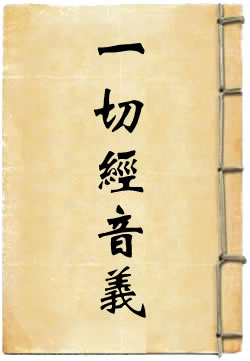 一切經音義